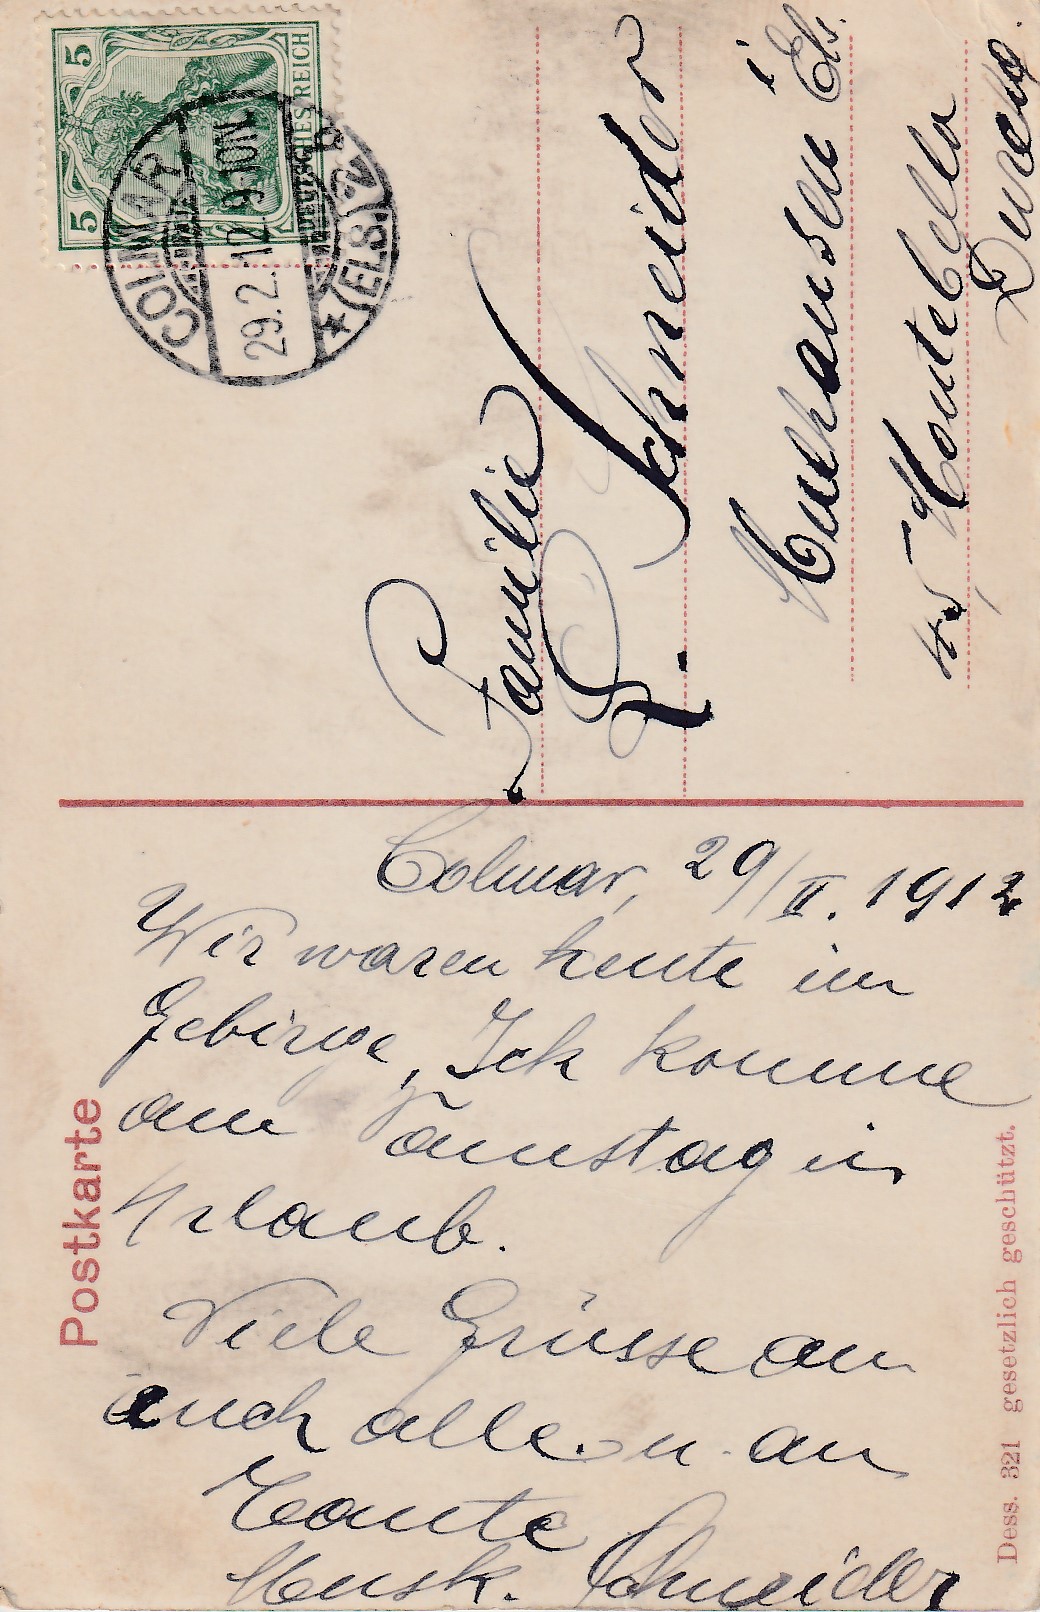 Postkarte
Colmar, 29/II. 1912
Wir waren heute im
Gebirge, Ich komme
am Samstag in
Urlaub.
Viele Grüsse an
euch alle u. an
Tante
Musk. Schneider
Familie
Schneider
Muelhausen i Els.
45 Montebello
5
5
DEUTSCHES REICH
COLMAR
29.2.12.9-10N.
* (ELS.) 2 b
Dess. 321 gesetzlich geschützt.